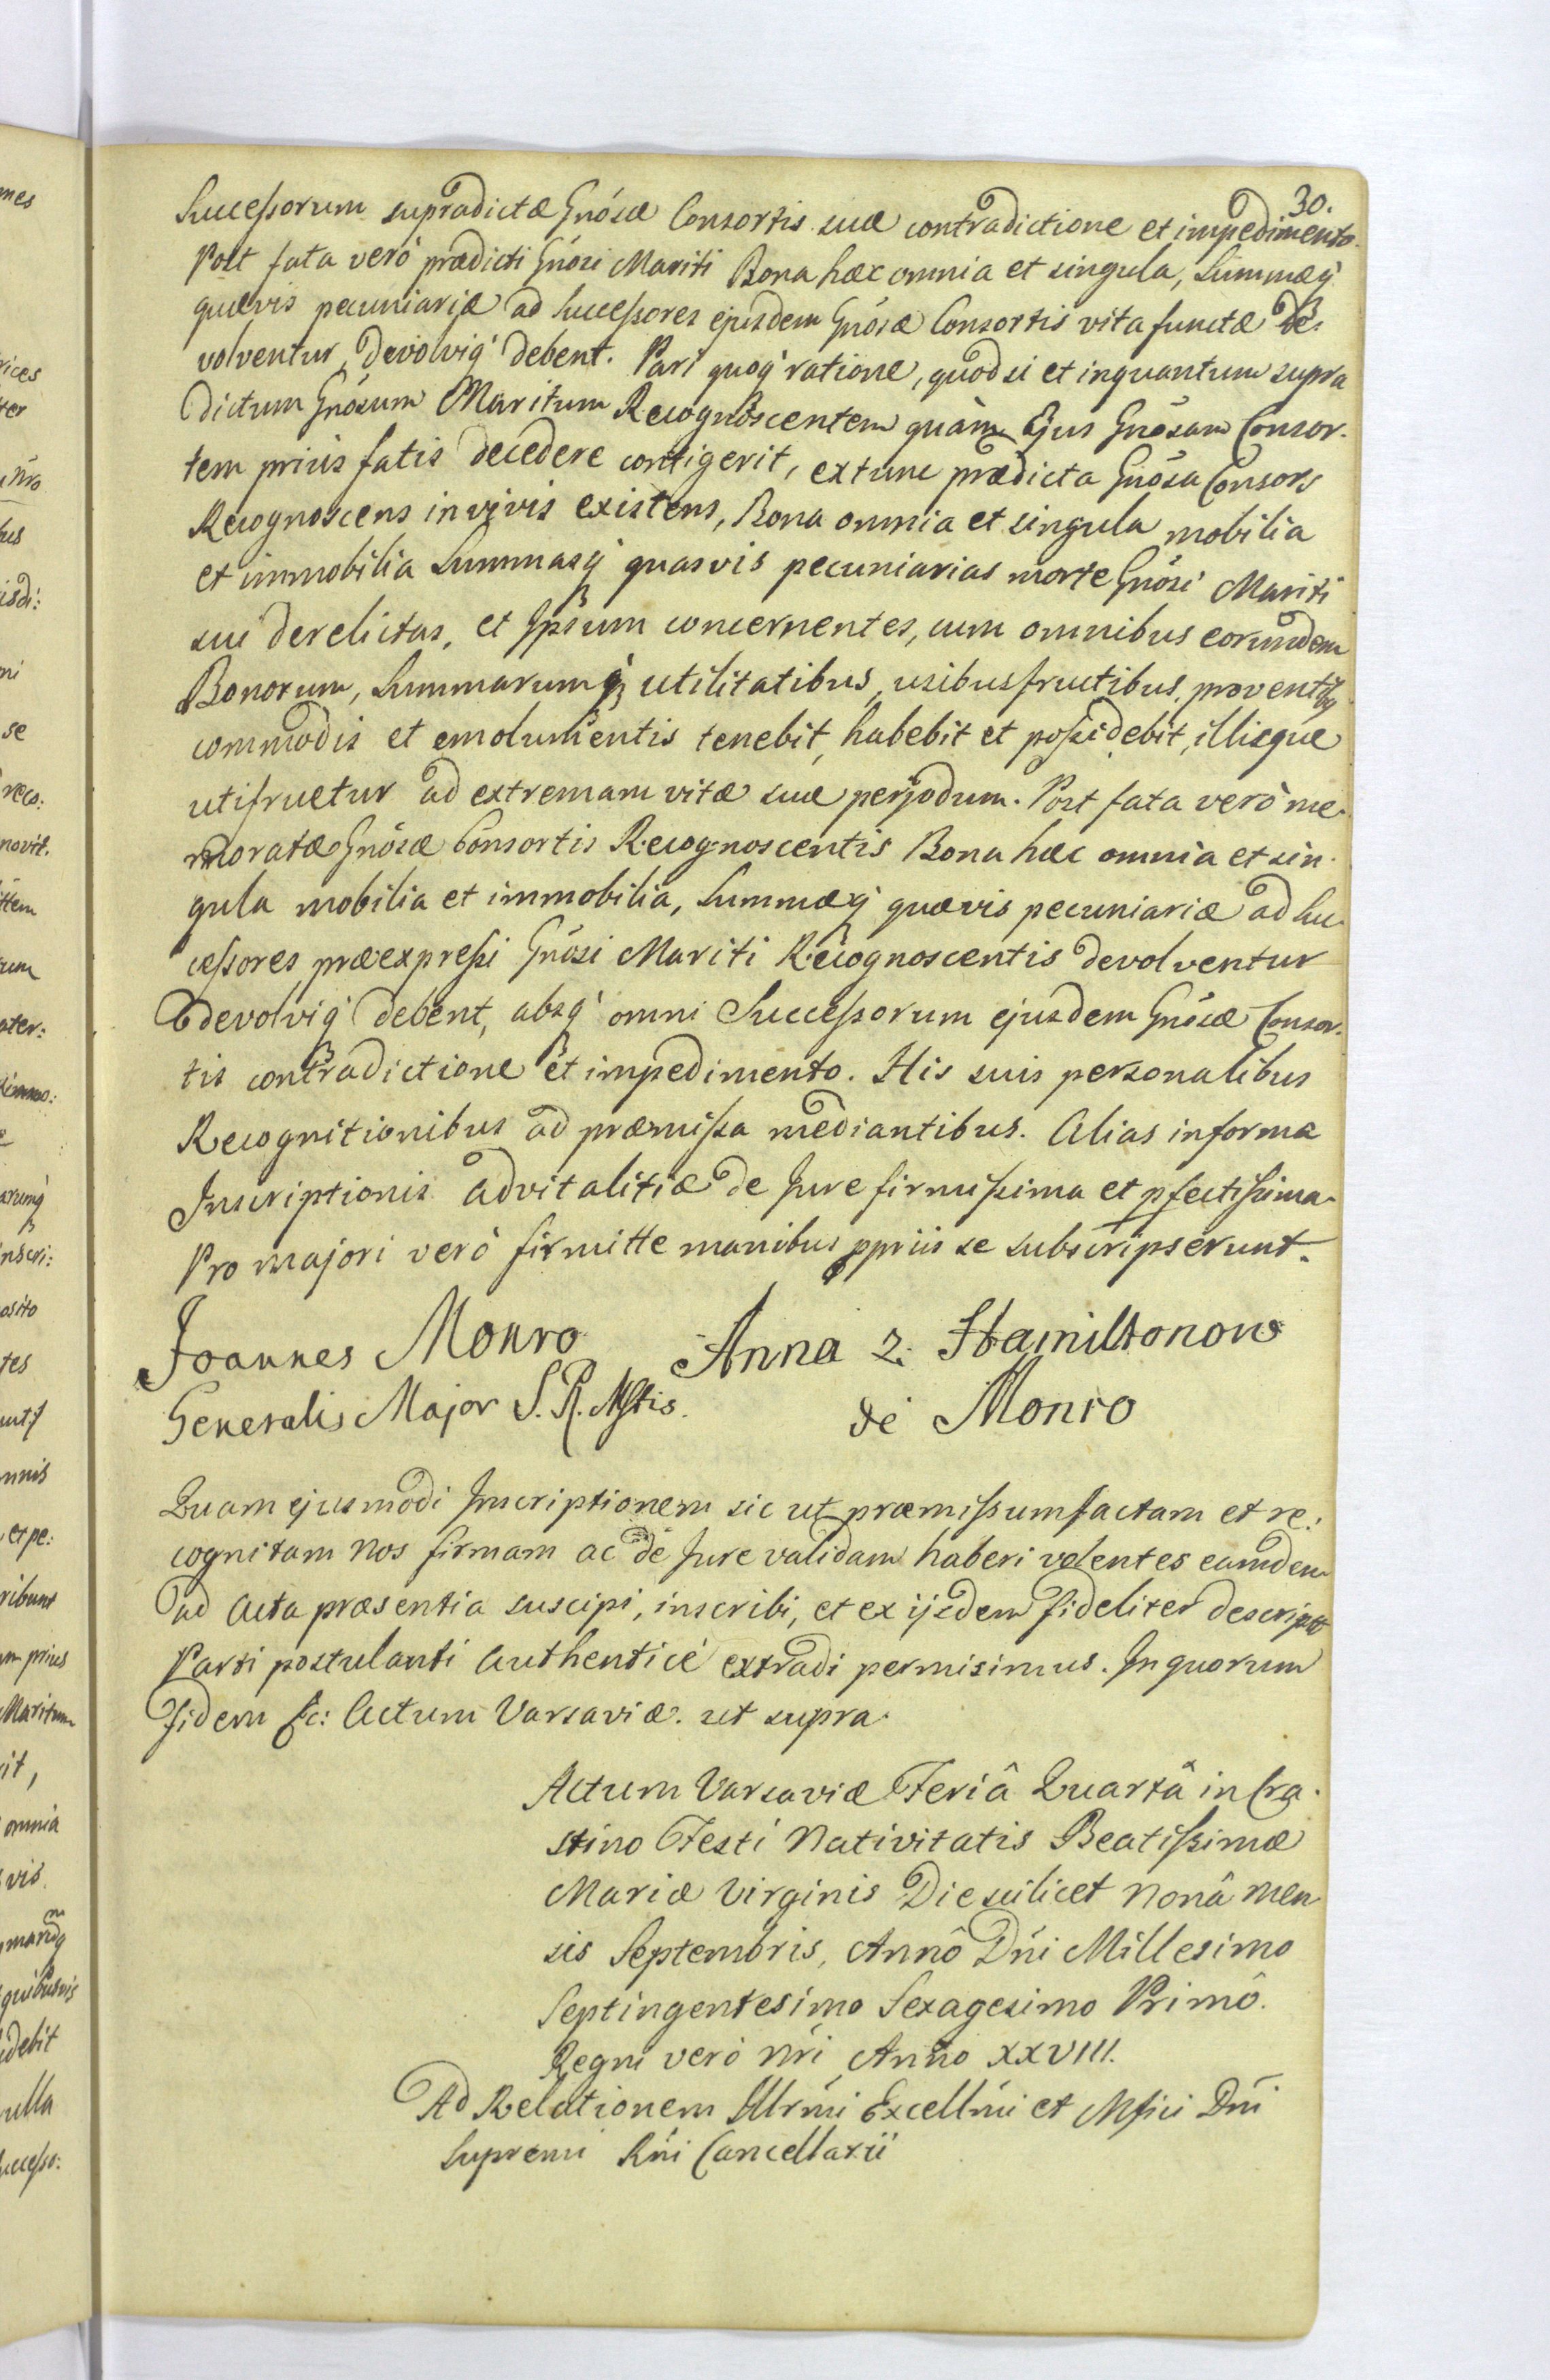 30.
Successorum supradictæ Gnosæ Consortis suæ contradictione et impedimento.
Post fata verò prædicti Gnosi Mariti Bona hæc omnia et singula, Summæq'
quævis pecuniariæ ad Successores ejusdem Gnosæ Consortis vita functæ de-
volventur, devolviq' debent. Pari quoq' ratione, quod si et inquantum supra
dictum Gnosum Maritum Recognoscentem quàm Ejus Gnosam Consor-
tem priùs fatis decedere contigerit, extunc prædicta Gnosa Consors
Recognoscens in vivis existens, Bona omnia et singula mobilia
et immobilia Summasq' quasvis pecuniarias morte Gnosi Mariti
sui derelictas, et Ipsum concernentes, cum omnibus eorumdem
Bonorum, Summarumq' utilitatibus, usibusfructibus, proventibq
commodis et emolumentis tenebit, habebit et possidebit, illisque
utifruetur ad extremam vitæ suæ perjodum. Post fata verò me-
moratæ Gnosæ Consortis Recognoscentis Bona hæc omnia et sin-
gula mobilia et immobilia, Summæq' quævis pecuniariæ ad Suc-
cessores præexpressi Gnosi Mariti Recognoscentis devolventur
devolviq' debent, absq' omni Successorum ejusdem Gnosæ Consor-
tis contradictione et impedimento. His suis personalibus
Recognitionibus ad præmissa mediantibus. Alias in forma
Inscriptionis advitalitiæ de Jure firmissima et pfectissima.
Pro majori verò firmitte manibus ppriis se subscripserunt.
Joannes Monro Anna z Hamiltonow
Generalis Major S. R. Mstis. de Monro
Quam ejusmodi Inscriptionem sic ut præmissum factam et re-
cognitam Nos firmam ac de Jure validam haberi volentes eamdem
ad Acta præsentia suscipi, inscribi, et ex ijsdem fideliter descriptt
Parti postulanti Authenticè extradi permisimus. In quorum
fidem &c: Actum Varsaviæ. ut supra.
Actum Varsaviæ Feriâ Quartâ in Cra-
stino Festi Nativitatis Beatissimæ
Mariæ Virginis Die scilicet Nonâ men
sis Septembris, Annô Dni Millesimo
Septingentesimo Sexagesimo Primô.
Regni verò Nri Anno XXVIII.
Ad Relationem Illrmi Excellmi et Mfici Dni
Supremi Rni Cancellarii